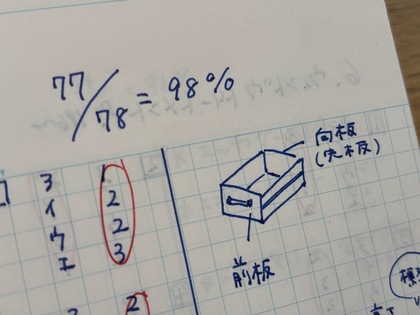 77/78 = 98%
3 1
イ 2
ウ 2
エ 3
2
向板
(先板)
前板